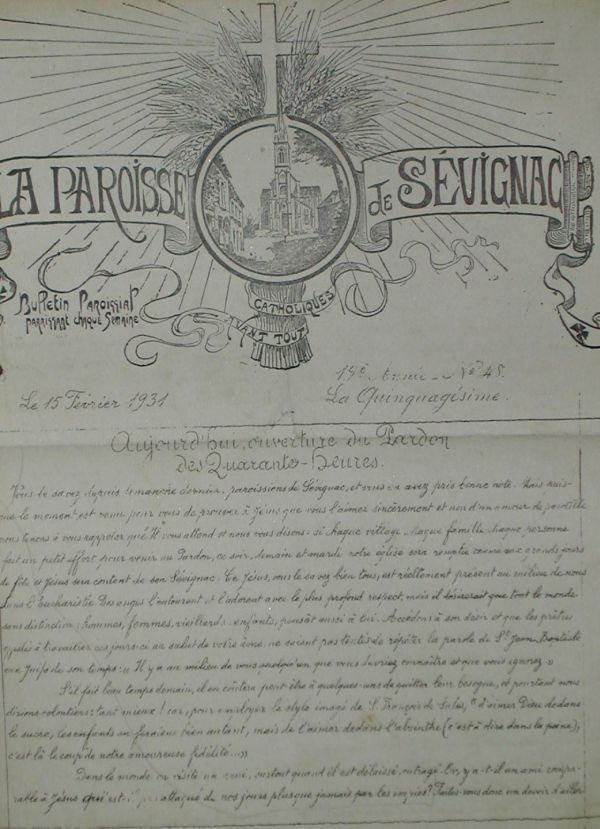 LA PAROISSE de SÉVIGNAC
CATHOLIQUES
AVANT TOUT
Bulletin Paroissial
paraissant chaque Semaine
Le 15 Février 1931
Année - No 45
La Quinquagésime.
Aujourd'hui, ouverture du Pardon
des Quarante-heures.
Vous le savez depuis dimanche dernier, paroissiens de Sévignac, et vous en avez pris bonne note. Mais puis-
que le moment est venu pour vous de prouver à Jésus que vous l'aimez sincèrement et non d'un amour de
nous tenons à vous rappeler qu'Il vous attend et nous vous disons: si chaque village, chaque famille, chaque personne
fait un petit effort pour venir au Pardon, ce soir, demain et mardi notre église sera remplie comme aux grands jours
de fête et Jésus sera content de son Sévignac. Ce Jésus, vous le savez bien tous, est réellement présent au milieu de nous
dans l'Eucharistie. Des anges l'entourent et l'adorent avec le plus profond respect, mais il désirerait que tout le monde
sans distinction: hommes, femmes, vieillards, enfants, pensât aussi à lui. Accédons à son désir et que les prêtres
appelés à travailler ces jours-ci au salut de votre âme ne soient pas tentés de répéter la parole de St Jean Baptiste
aux Juifs de son temps: « Il y a au milieu de vous quelqu'un que vous devriez connaître et que vous ignorez »
S'il fait beau temps demain, il en coûtera peut-être à quelques-uns de quitter leur besogne, et pourtant nous
dirions volontiers: tant mieux! car, pour employer le style imagé de St François de Sales, "d'aimer Dieu dedans
le sucre, les enfants en feraient bien autant, mais de l'aimer dedans l'absinthe (c'est à dire dans la peine),
c'est là le coup de notre amoureuse fidélité..."
Dans le monde on visite un ami, surtout quand il est délaissé, outragé. Or, y a-t-il un ami compa-
rable à Jésus qui est attaqué de nos jours plus que jamais par les impies? Faites-vous donc un devoir d'aller